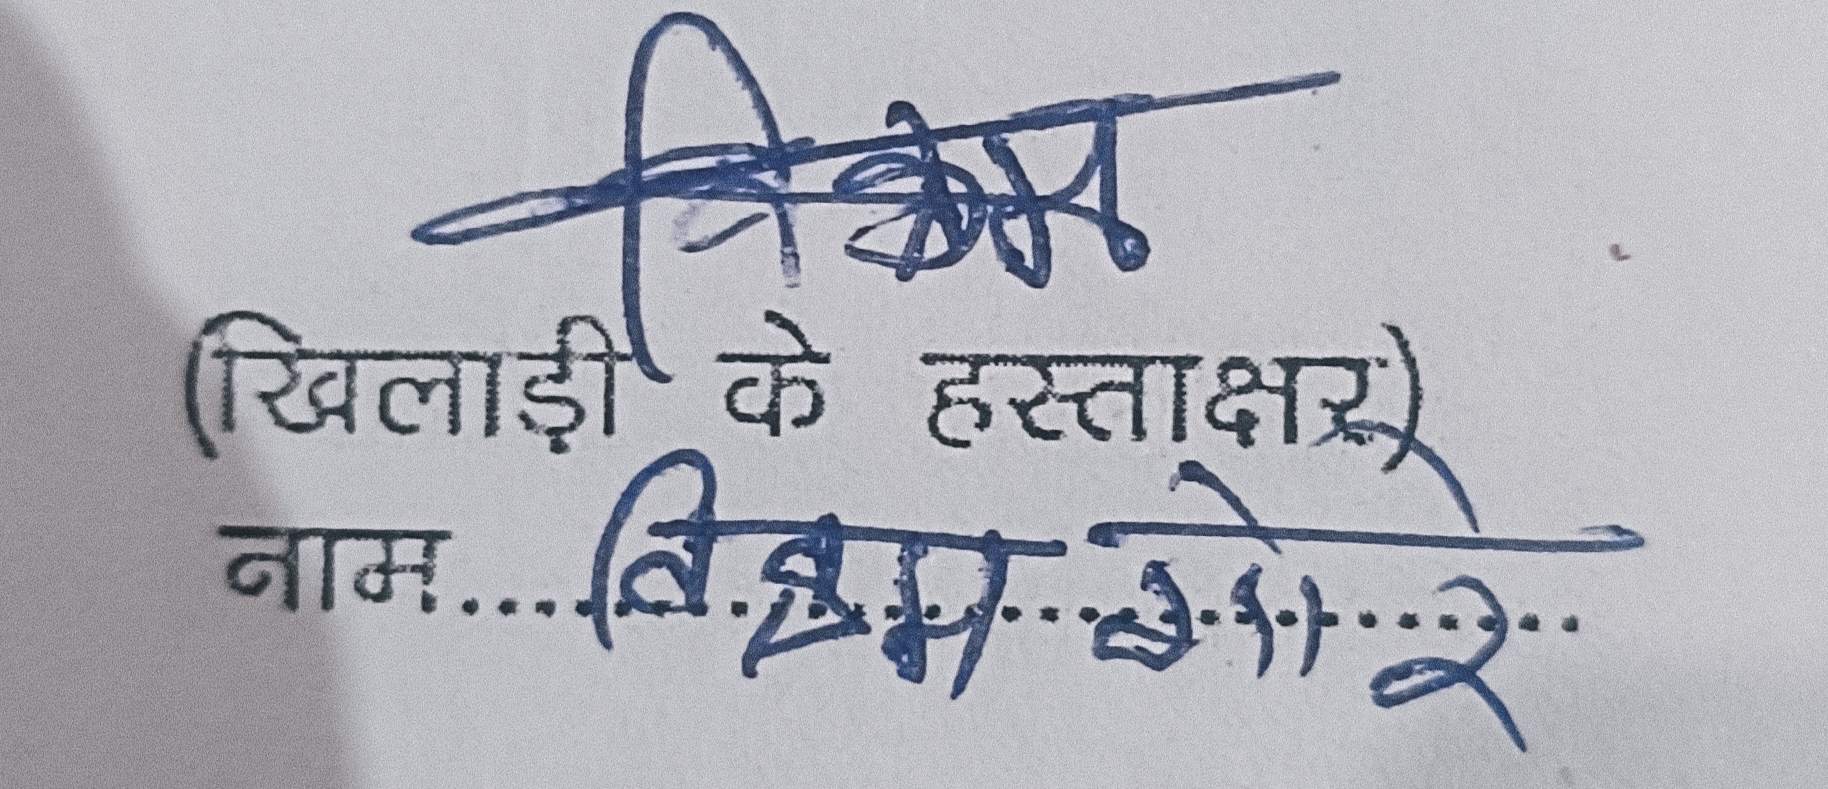 विक्रम
(खिलाड़ी के हस्ताक्षर)
नाम....विक्रम..........